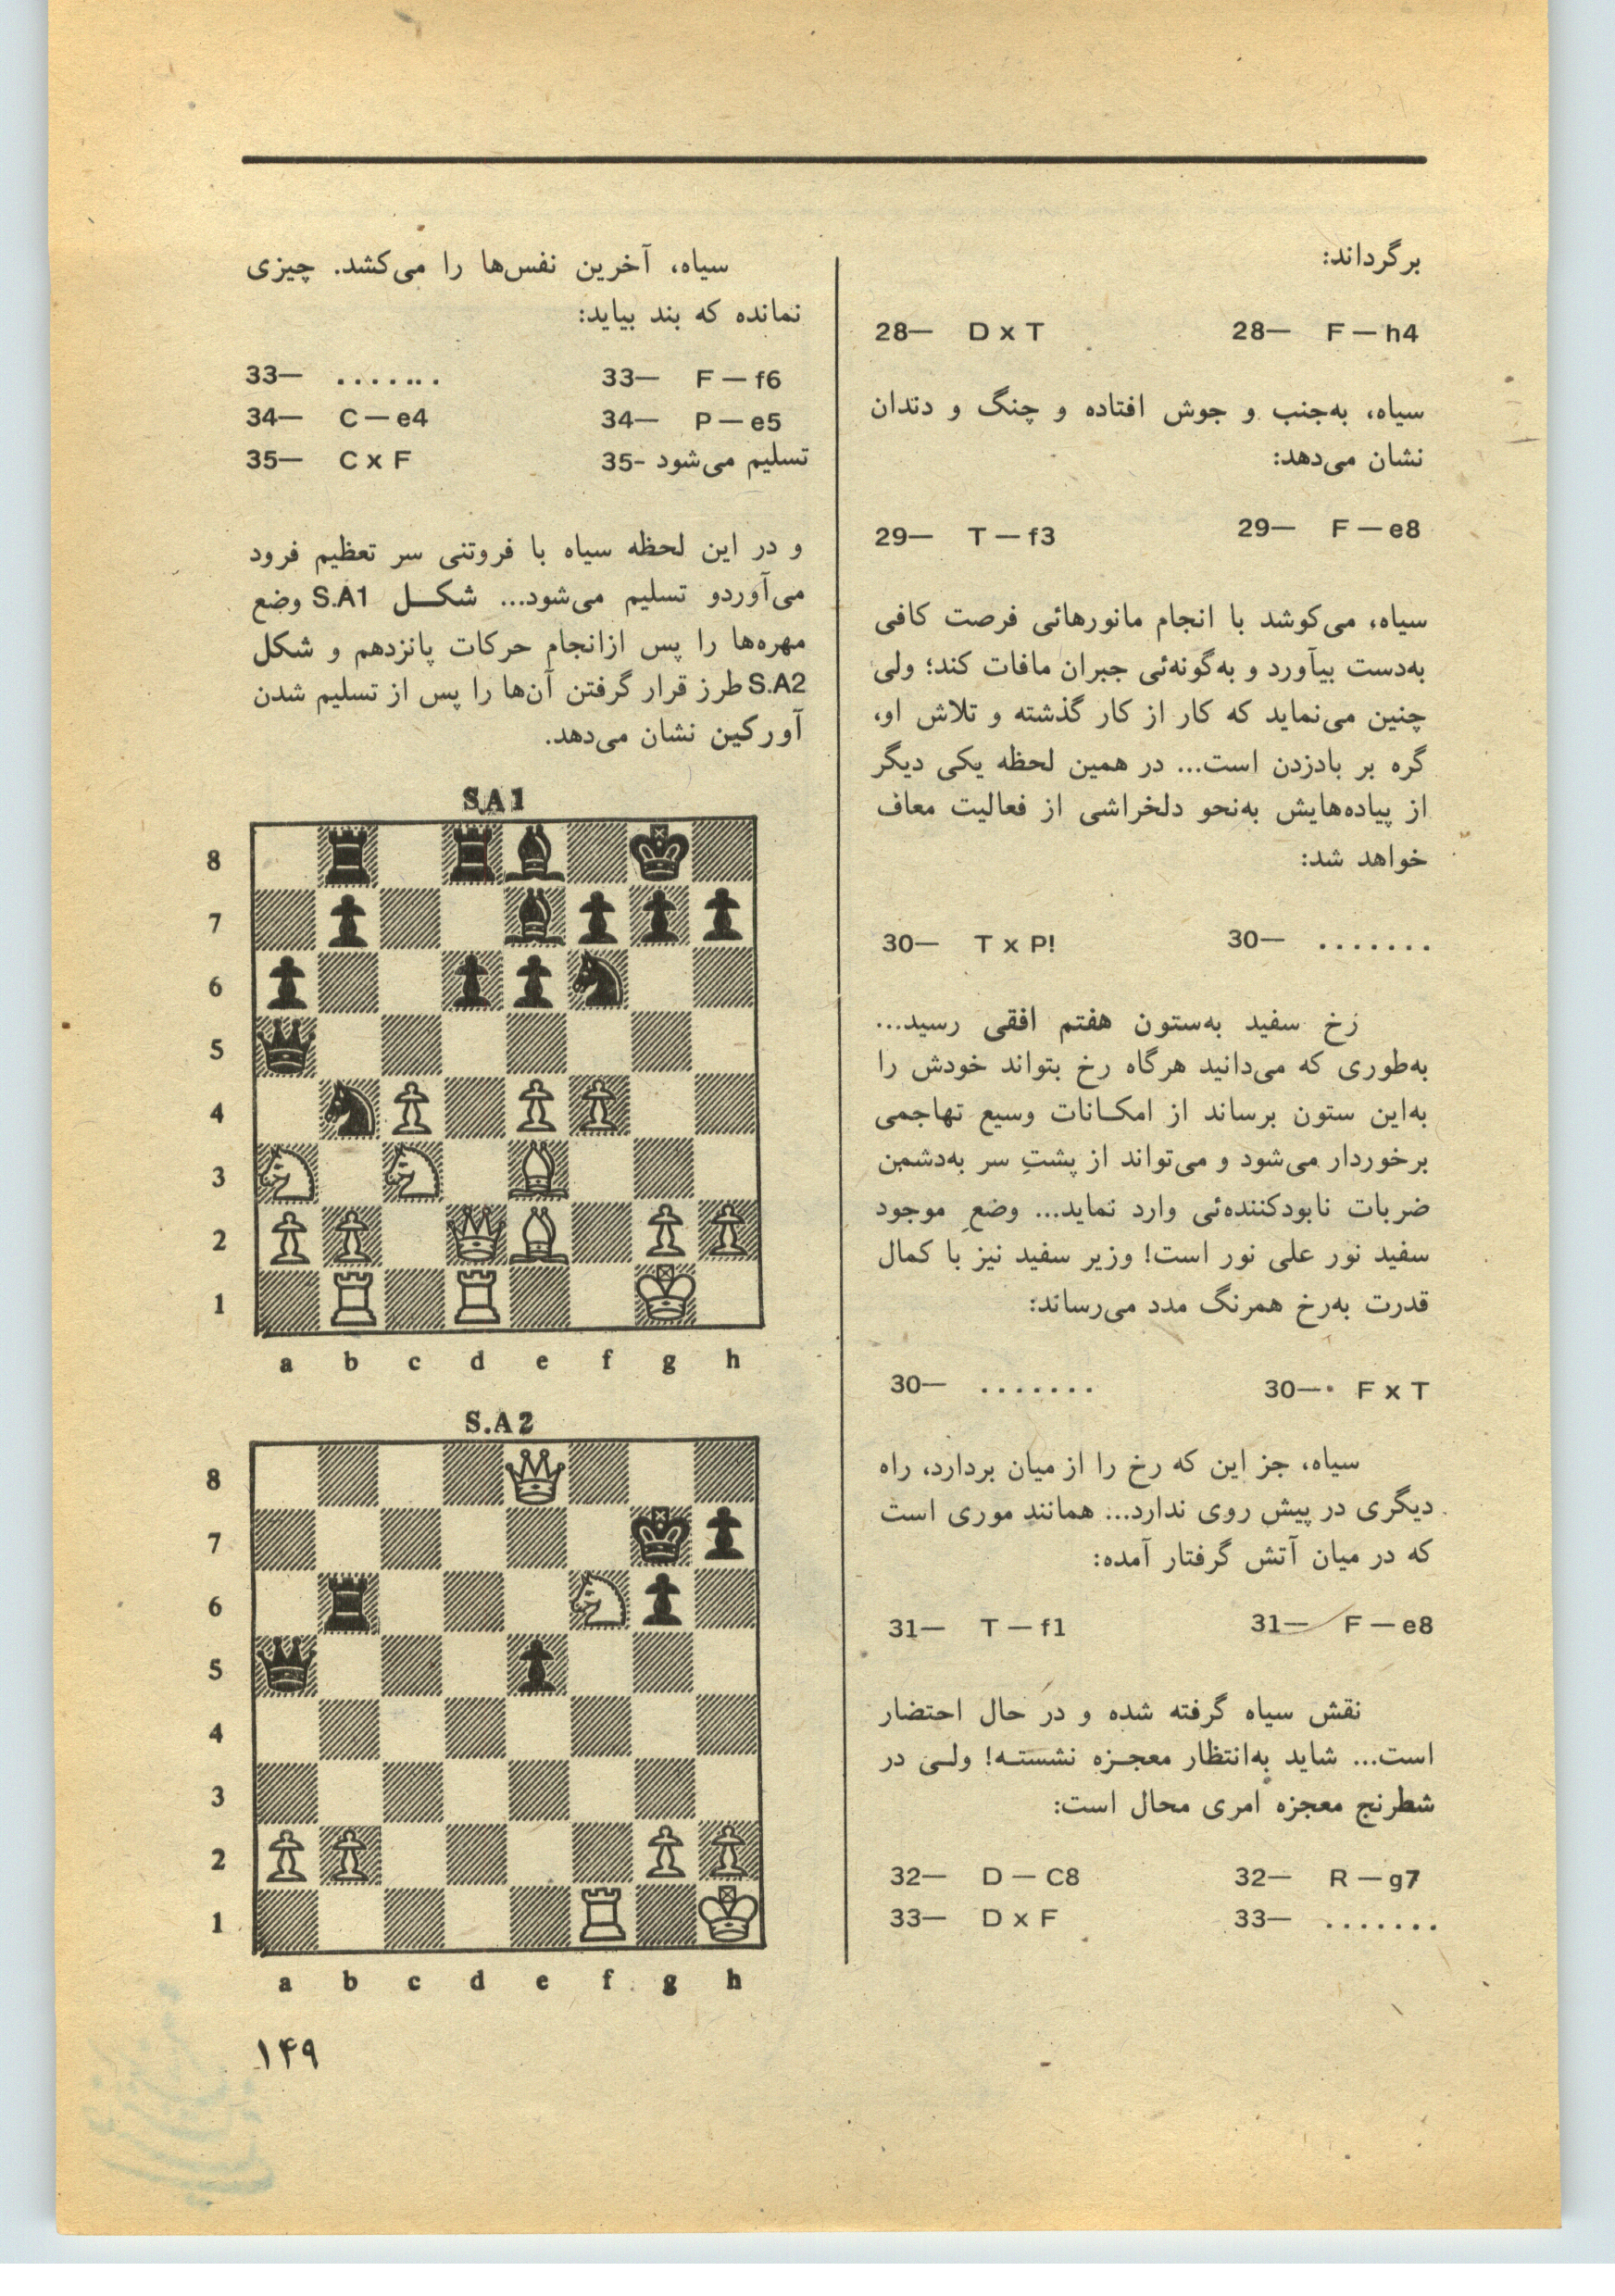 برگرداند:
28— D x T 28— F — h4
سیاه، به‌جنب و جوش افتاده و چنگ و دندان
نشان می‌دهد:
29— T — f3 29— F — e8
سیاه، می‌کوشد با انجام مانورهائی فرصت کافی
به‌دست بیآورد و به‌گونه‌ئی جبران مافات کند؛ ولی
چنین می‌نماید که کار از کار گذشته و تلاش او،
گره بر بادزدن است... در همین لحظه یکی دیگر
از پیاده‌هایش به‌نحو دلخراشی از فعالیت معاف
خواهد شد:
30— T x P! 30— .......
رَخ سفید به‌ستون هفتم افقی رسید...
به‌طوری که می‌دانید هرگاه رخ بتواند خودش را
به‌این ستون برساند از امکـانات وسیع تهاجمی
برخوردار می‌شود و می‌تواند از پشتِ سر به‌دشمن
ضربات نابودکننده‌ئی وارد نماید... وضعِ موجود
سفید نور علی نور است! وزیر سفید نیز با کمال
قدرت به‌رخ همرنگ مدد می‌رساند:
30— ....... 30— F x T
سیاه، جز این که رخ را از میان بردارد، راه
دیگری در پیش روی ندارد... همانند موری است
که در میان آتش گرفتار آمده:
31— T — f1 31— F — e8
نقش سیاه گرفته شده و در حال احتضار
است... شاید به‌انتظار معجـزه نشستـه! ولـی در
شطرنج معجزه امری محال است:
32— D — C8 32— R — g7
33— D x F 33— .......
سیاه، آخرین نفس‌ها را می‌کشد. چیزی
نمانده که بند بیاید:
33— ....... 33— F — f6
34— C — e4 34— P — e5
35— C x F 35- تسلیم می‌شود
و در این لحظه سیاه با فروتنی سر تعظیم فرود
می‌آوردو تسلیم می‌شود... شکــل S.A1 وضع
مهره‌ها را پس ازانجام حرکات پانزدهم و شکل
S.A2 طرز قرار گرفتن آن‌ها را پس از تسلیم شدن
آورکین نشان می‌دهد.
S.A1
8
7
6
5
4
3
2
1
a b c d e f g h
S.A2
8
7
6
5
4
3
2
1
a b c d e f g h
۱۴۹